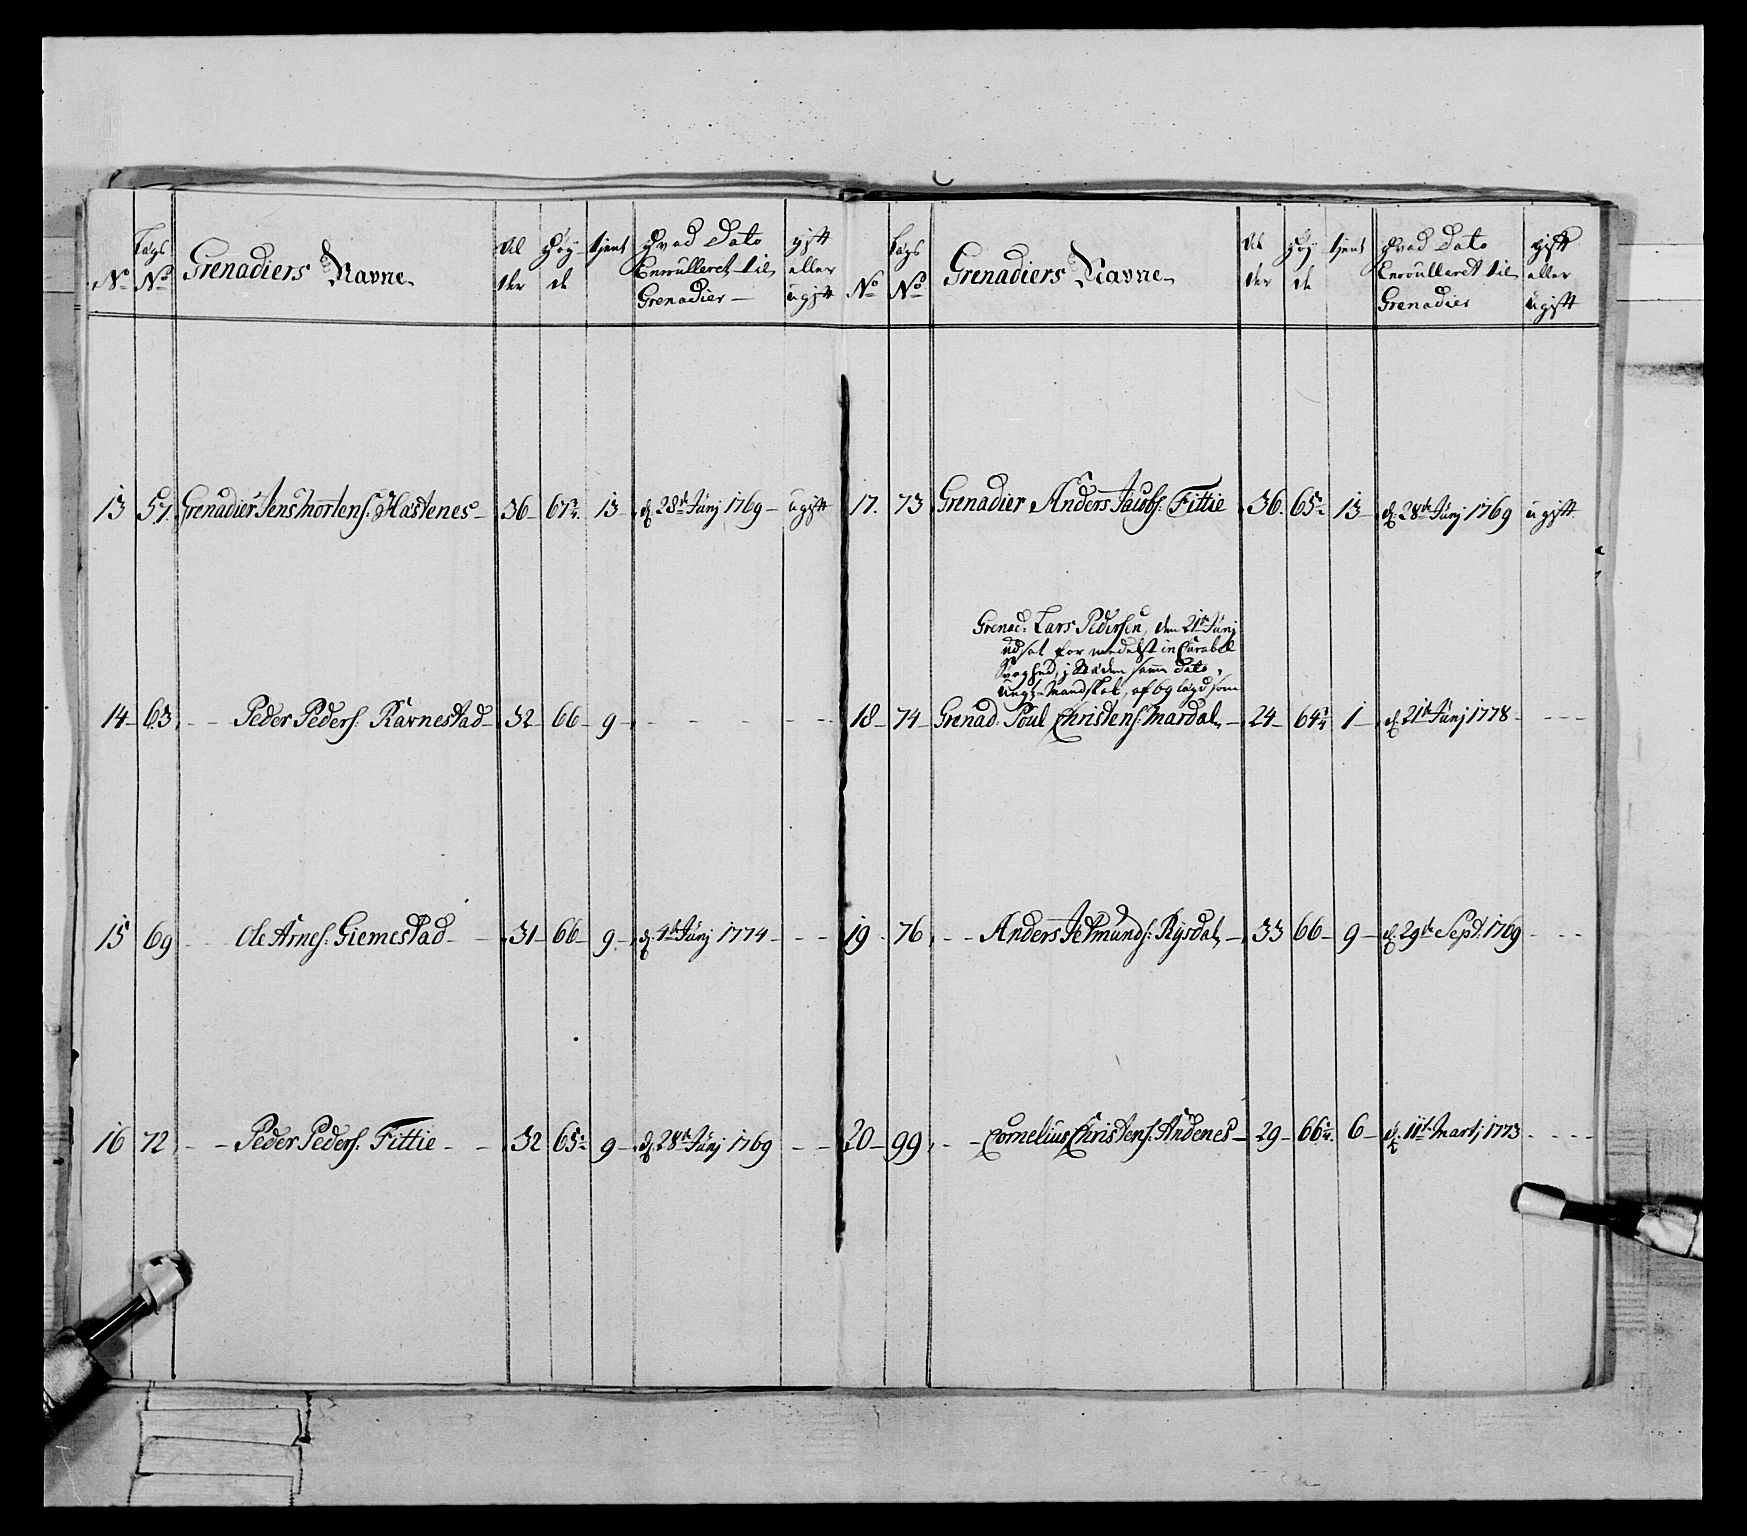 No
Lægs No
Grenadiers Navne
Al der
Høy de
tient
Hvad Dato Enroulleret til Grenadier
gift eller ugift
13 57. Grenadier Jens Mortens: Hastenes 36 13 d: 28de Junj 1769 ugift
14 63 Peder Peders: Ravnestad 32 66 9
15 69 Ole Arnes: Giemestad 31 66 9 d: 4de Junj 1774
16 72 Peder Peders: Fittie 32 65 9 d: 28de Junj 1769
No
Lægs No
Grenadiers Navne
Al der
Høy de
tient
Hvad Dato Enroulleret til Grenadier
gift eller ugift
17. 73 Grenadier Anders Jacobs: Fittie 36 65 13 d: 28de Junj 1769 ugift
Grenad: Lars Pedersen, den 21de Junj
udsat formedelst incurabel
Svaghed, j Stæden samme Dato,
Ungt-Mandskab, af 69 lægd som
18 74 Grenad: Poul Christens: Mardal 24 64 1 d: 21de Junj 1778
19 76 Anders Jetmunds: Rysdal 33 66 9 d: 29de Sept: 1769
20 99 Cornelius Christens: Andenes 29 66 6 d: 11te Martj 1773